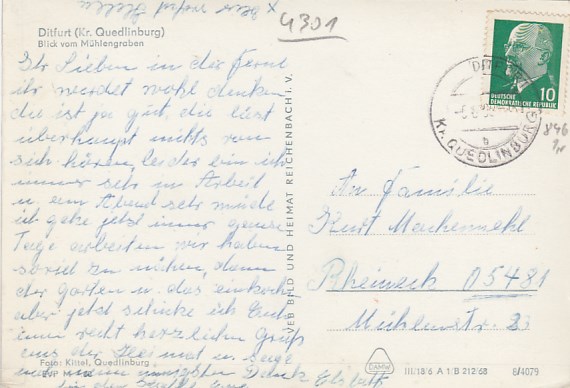 4301
Ditfurt (Kr. Quedlinburg)
Blick vom Mühlengraben
Ihr Lieben in der Ferne
ihr werdet wohl denken
die ist ja gut, die läst
überhaupt nichts von
sich hören, leider bin ich
immer sehr in Arbeit
u. am Abend sehr müde
ich gehe jetzt immer ganze
Tage arbeiten wir haben
soviel zu nähen, dann
der Garten u. das einkochen
aber jetzt schicke ich Euch
einen recht herzlichen Gruß
aus der Heimat u. sage
Foto: Kittel, Quedlinburg
Dank Elsbeth
für die
VEB BILD UND HEIMAT REICHENBACH i. V.
DEUTSCHE
DEMOKRATISCHE REPUBLIK
10
Kr. QUEDLINBURG
b
846
An Familie
Kurt Machemehl
Rheineck 05481
Mühlenstr. 23
III/18/6 A 1/B 212/68
8/4079